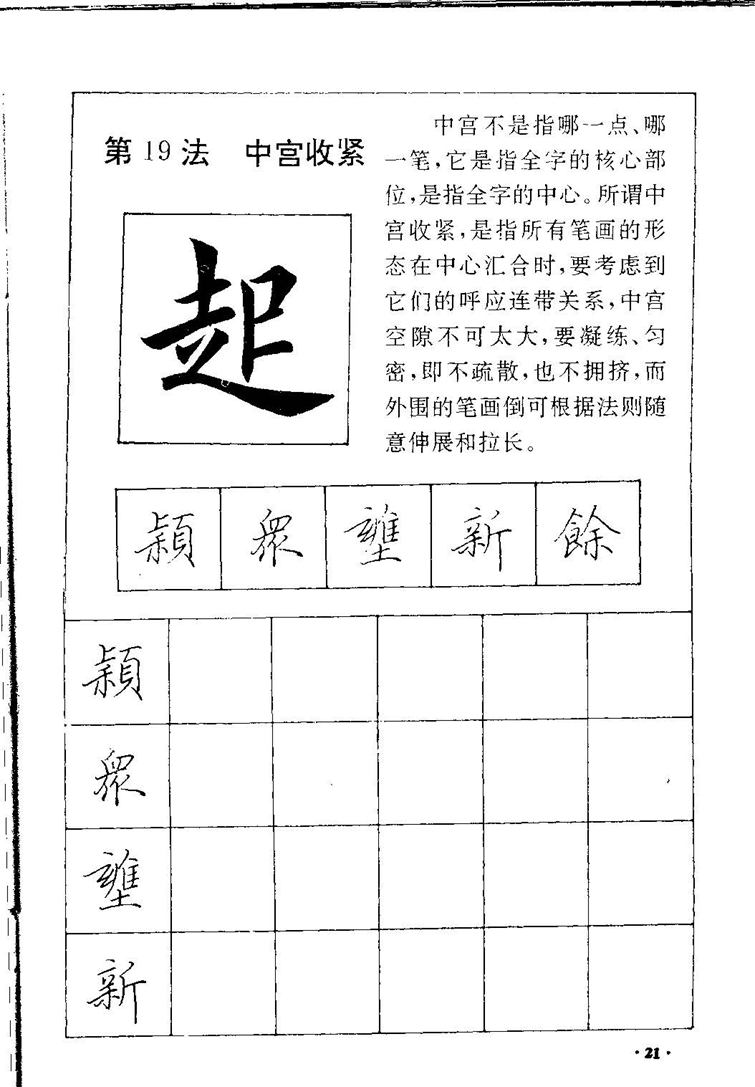 第19法 中宫收紧
中宫不是指哪一点、哪
一笔，它是指全字的核心部
位，是指全字的中心。所谓中
宫收紧，是指所有笔画的形
态在中心汇合时，要考虑到
它们的呼应连带关系，中宫
空隙不可太大，要凝练、匀
密，即不疏散，也不拥挤，而
外围的笔画倒可根据法则随
意伸展和拉长。
起
頴 眾 壅 新 餘
頴
眾
壅
新
·21·